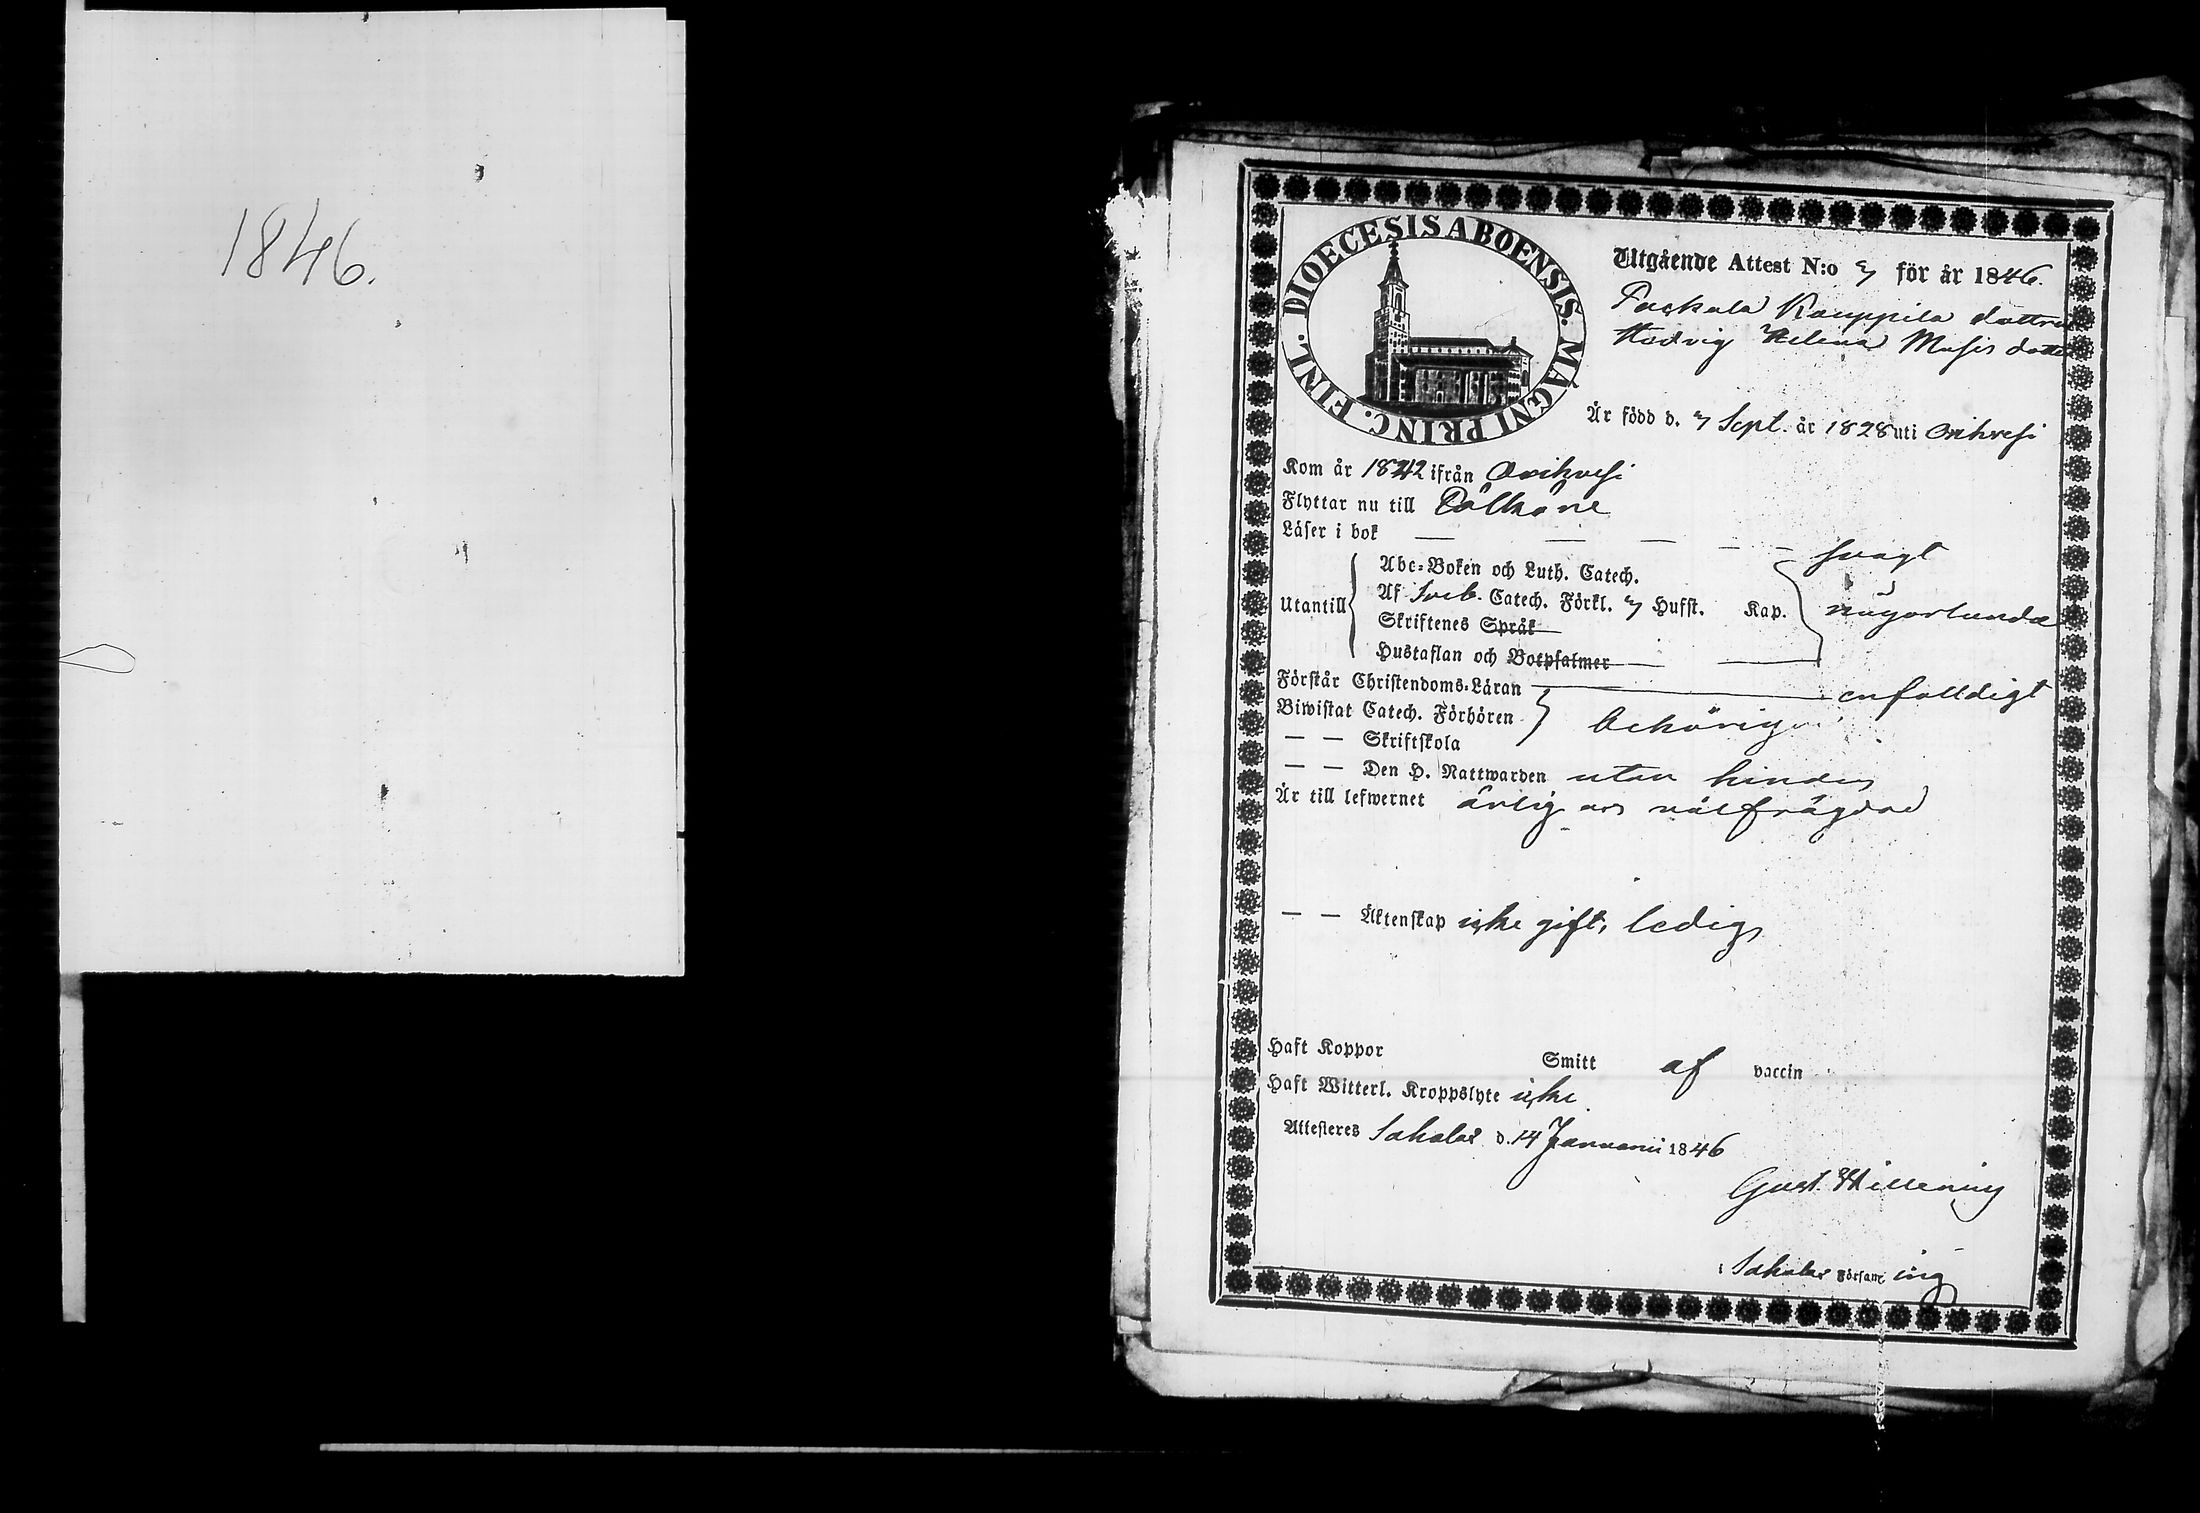 1846.
DIOECESIS ABOENSIS. MAGNI PRINC. FINL.
Utgående Attest N:o 7 för år 1846.
Kauppila dottren
Hedvig Helena Mosis dotter
Är född d. 7 Sept. år 1828 uti Orihvesi
Kom år 1842 ifrån Orihvesi
Flyttar nu till Pälkäne
Läser i bok — — — — — svagt
Abc-Boken och Luth. Catech.
Utantill Af Sveb. Catech. Förkl. 7 Hufst. Kap. någorlunda
Skriftenes Språk
Hustaflan och Botpsalmer
Förstår Christendoms-Läran enfalldigt
Biwistat Catech. Förhören behörigen
— — Skriftskola
— — Den H. Nattwarden utan hinder
Är till lefwernet ärlig och välfrägdad
— — Äktenskap icke gift, ledig
Haft Koppor Smitt af vaccin
Haft Witterl. Kroppslyte icke
Attesteres Sahalax d. 14 Januarii 1846
Gust. Hillening
i Sahalax Försam ing